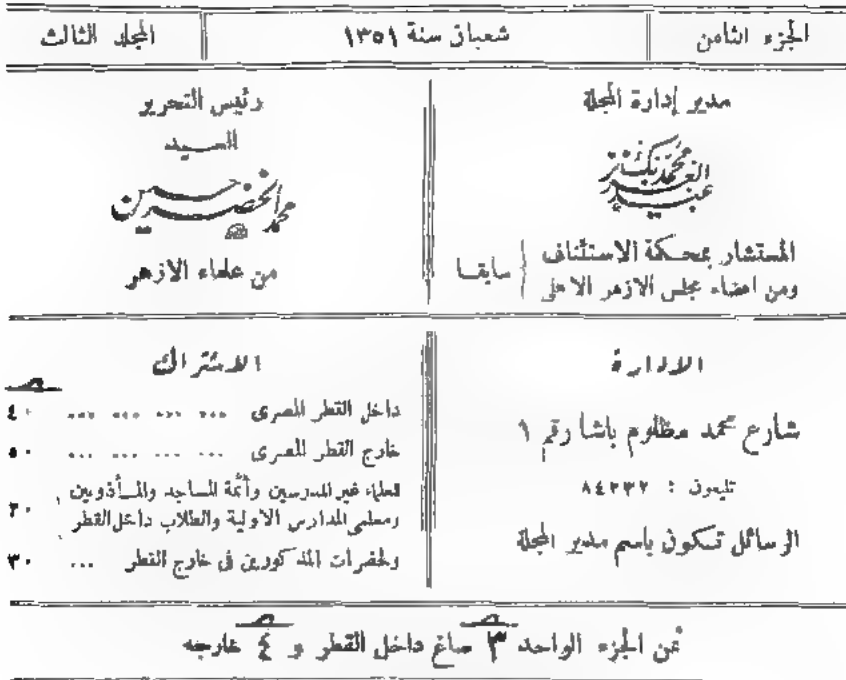 الجزء الثامن
شعبان سنة ١٣٥١
المجلد الثالث
مدير إدارة المجلة
عبد العزيز محمد بك
المستشار بمحكمة الاستئناف
ومن اعضاء مجلس الازهر الاعلى
سابقا
رئيس التحرير
السيد
محمد الخضر حسين
من علماء الازهر
الادارة
شارع محمد مظلوم باشا رقم ١
تليفون : ٨٤٣٣٢
الرسائل تكون باسم مدير المجلة
الاشتراك
داخل القطر المصرى ... ... ... ... ٤٠
خارج القطر المصرى ... ... ... ... ٥٠
للعلماء غير المدرسين وأئمة المساجد والمأذونين
ومعلمى المدارس الاولية والطلاب داخل القطر
٢٠
ولحضرات المذكورين فى خارج القطر ... ٣٠
ثمن الجزء الواحد ٣ صاغ داخل القطر و ٤ خارجه